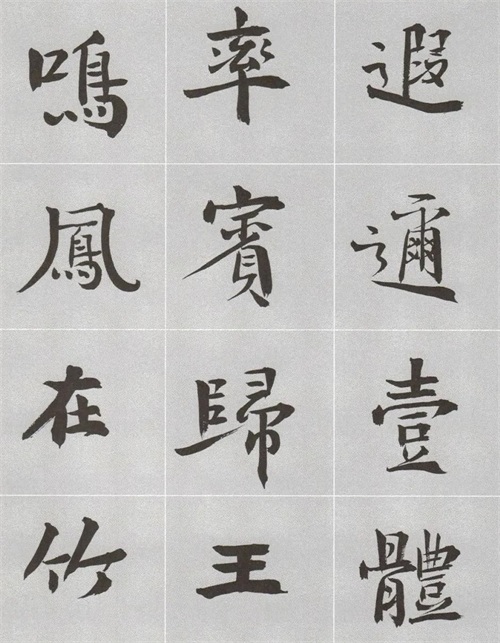 遐邇壹體
率賓歸王
鳴鳳在竹